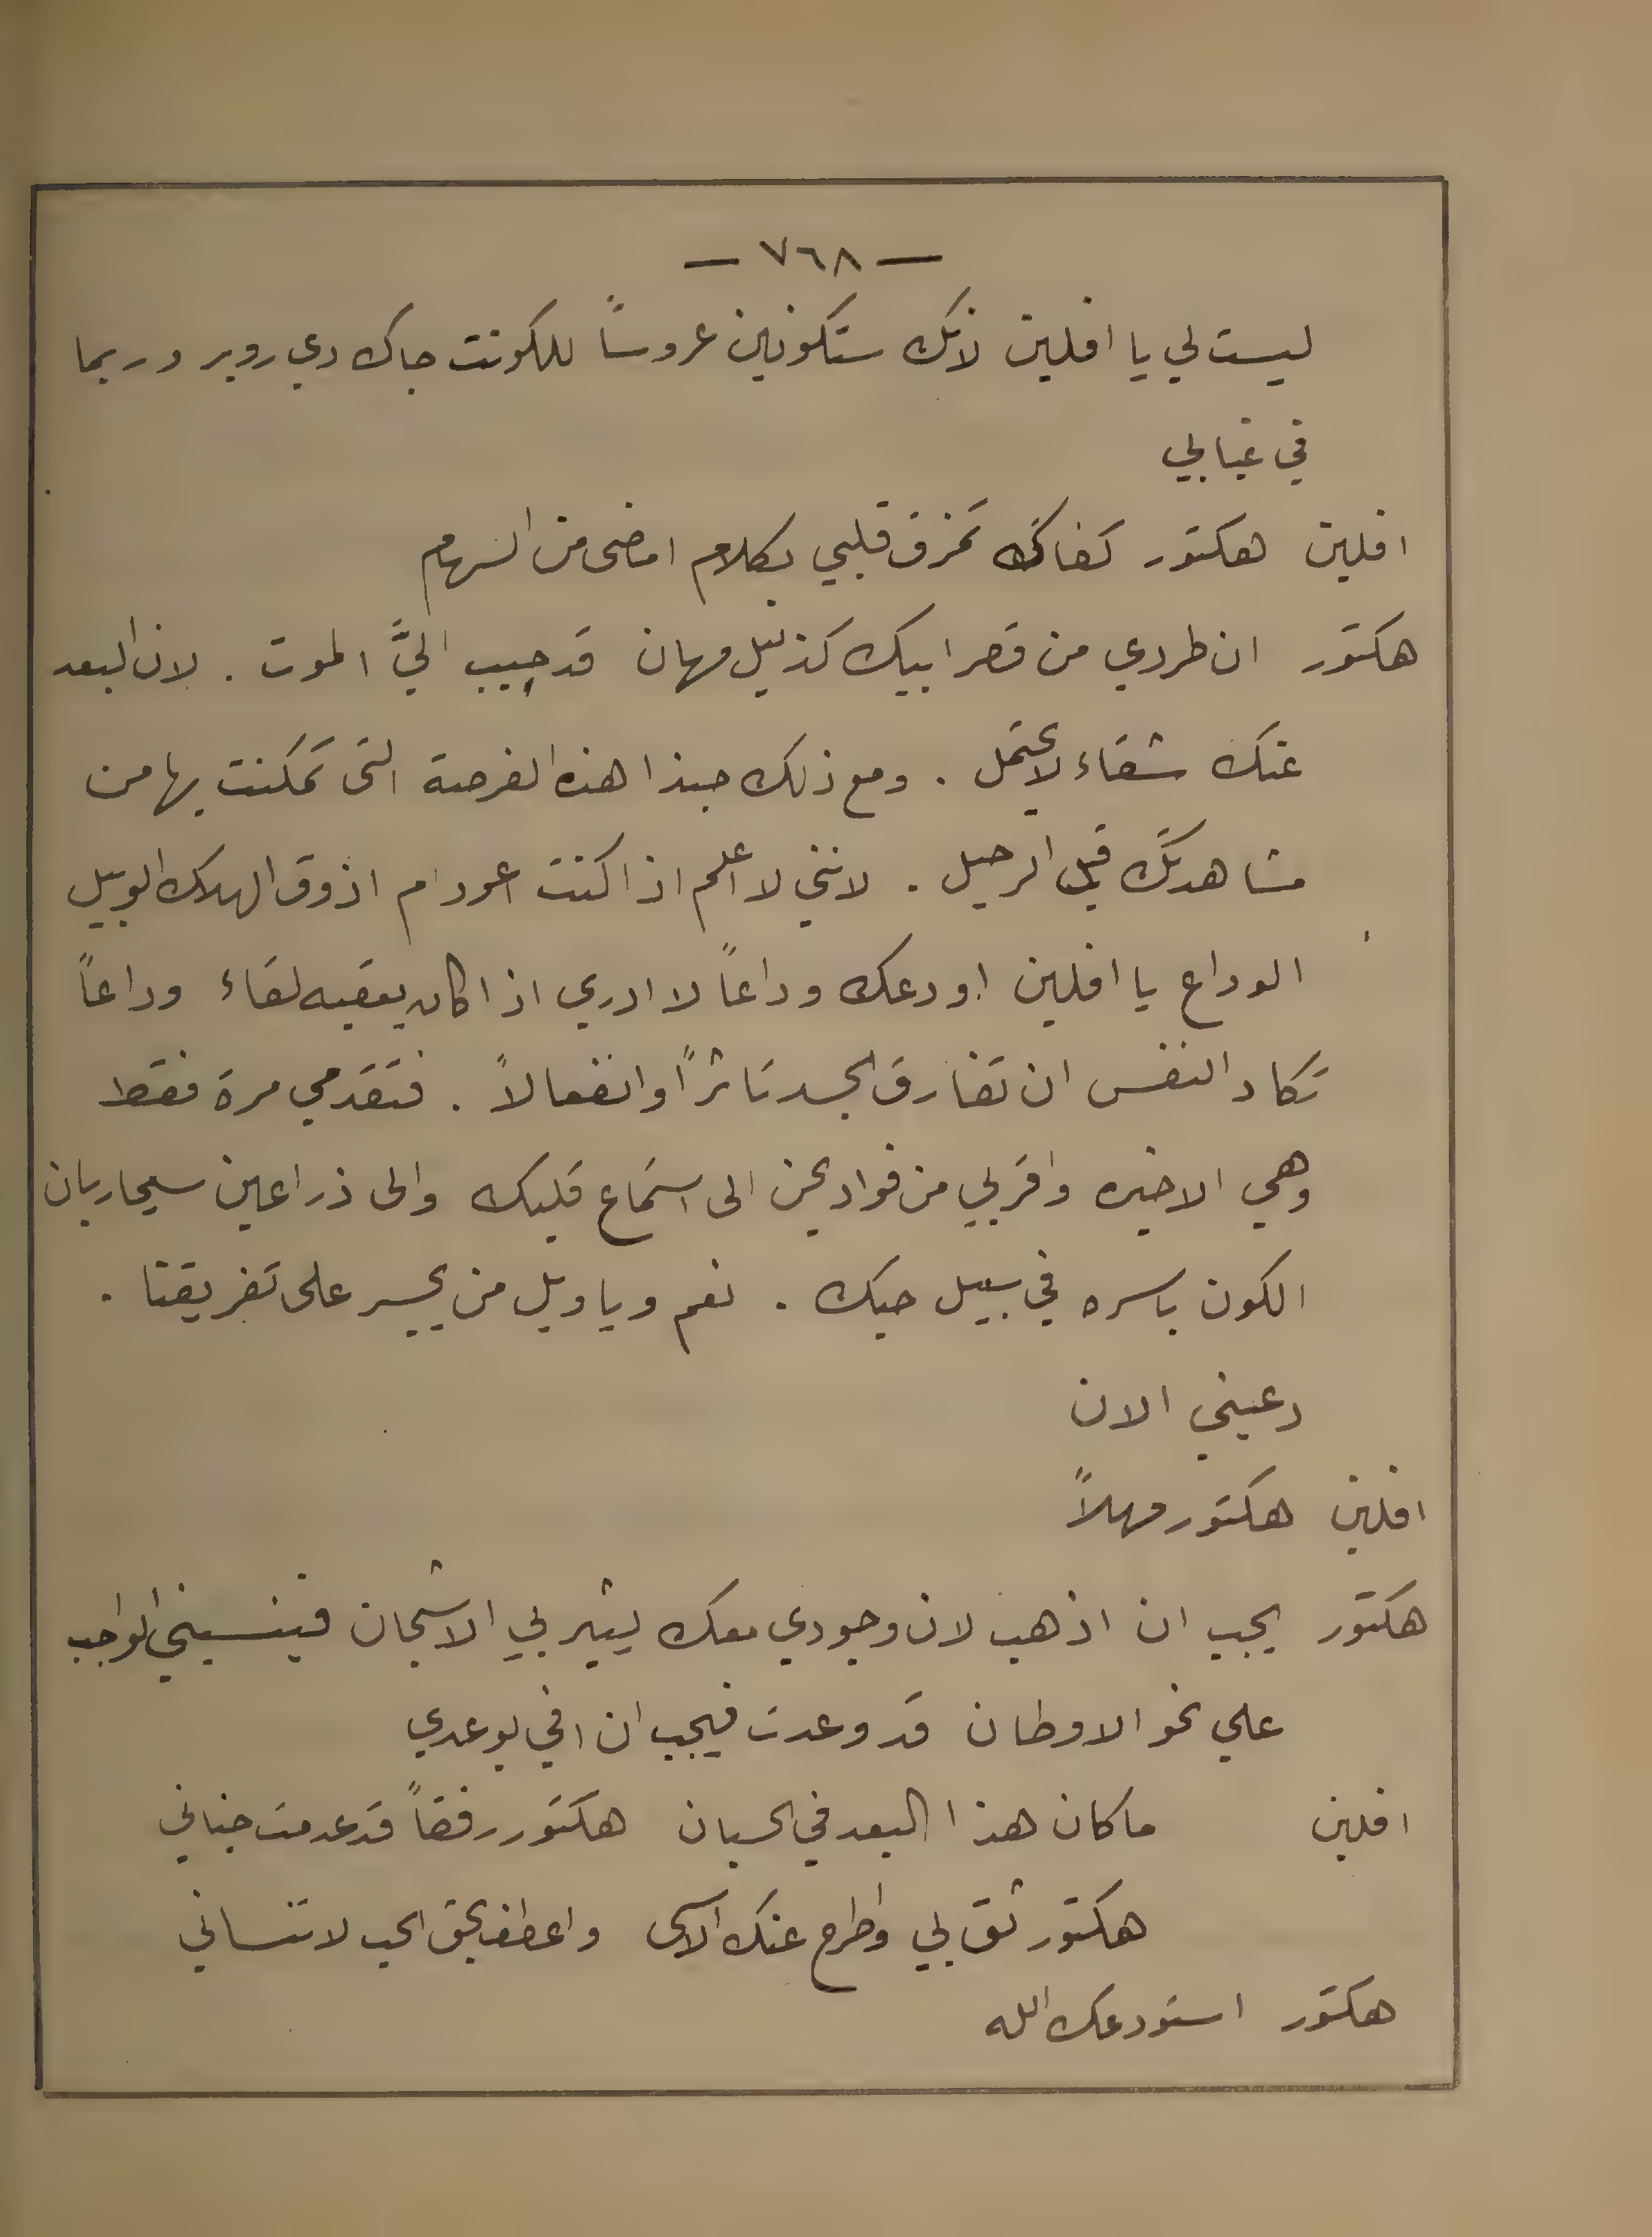 — ٧٦٨ —
ليست لي يا افلين لانك ستكونين عروساً للكونت جاك دي روبر وربما
في غيابي
افلين هكتور كفاك تمزق قلبي بكلام امضى من السهام
هكتور ان طردي من قصر ابيك كذليل مهان قد حبب اليَّ الموت . لان البعد
عنك شقاء لا يحتمل . ومع ذلك حبذا هذه الفرصة التى تمكنت بها من
مشاهدتك قبل الرحيل . لانني لا اعلم اذا كنت اعود ام اذوق الهلاك الوبيل
الوداع يا افلين اودعك وداعاً لا ادري اذا كان يعقبه لقاء وداعاً
تكاد النفس ان تفارق الجسد تاثراً وانفعالاً . فتقدمي مرة فقط
وهي الاخيره واقربي من فواد يحن الى استماع قلبك والى ذراعين سيحاربان
الكون باسره في سبيل حبك . نعم ويا ويل من يجسر على تفريقنا .
دعيني الان
افلين هكتور مهلاً
هكتور يجب ان اذهب لان وجودي معك يثير بي الاشجان فينسيني الواجب
علي نحو الاوطان قد وعدت فيجب ان افي بوعدي
افلين ما كان هذا البعد في الحسبان هكتور رفقاً قد عدمت جناني
هكتور ثق بي واطرح عنك الاسى واعطف بحق الحب لا تنساني
هكتور استودعك الله